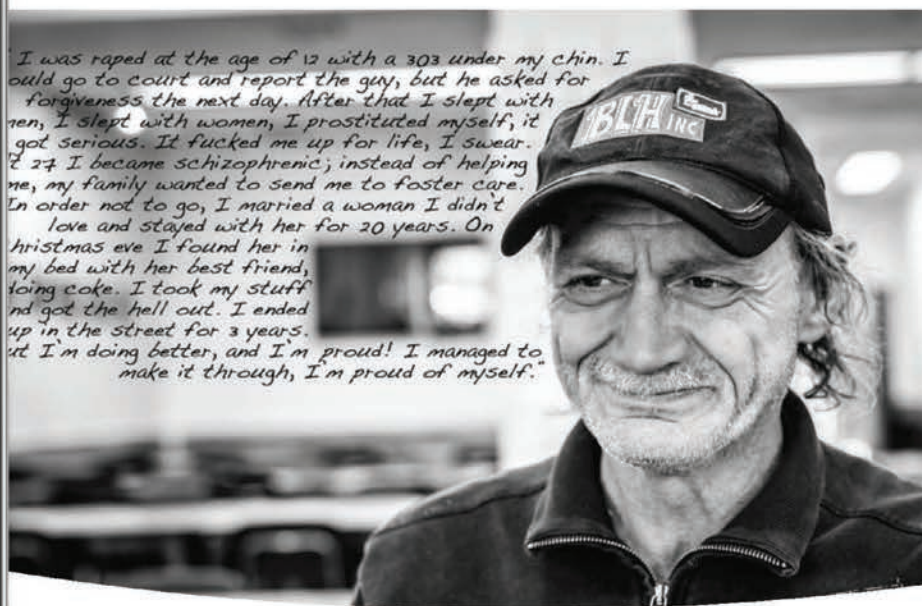 " I was raped at the age of 12 with a 303 under my chin. I
ould go to court and report the guy, but he asked for
forgiveness the next day. After that I slept with
nen, I slept with women, I prostituted myself, it
got serious. It fucked me up for life, I swear.
t 27 I became schizophrenic; instead of helping
me, my family wanted to send me to foster care.
In order not to go, I married a woman I didn't
love and stayed with her for 20 years. On
hristmas eve I found her in
my bed with her best friend,
doing coke. I took my stuff
nd got the hell out. I ended
up in the street for 3 years.
ut I'm doing better, and I'm proud! I managed to
make it through, I'm proud of myself."
BLH INC